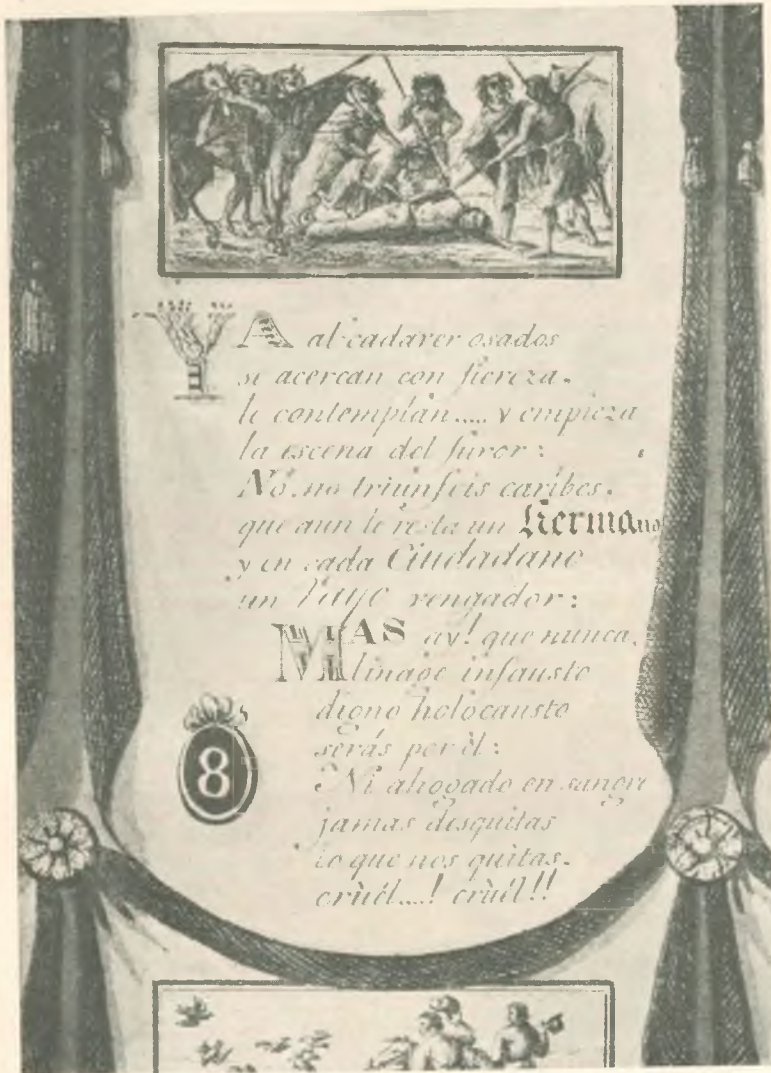 YA al cadaver osados
se acercan con fiereza.
le contemplan..... y empieza
la escena del furor:
No, no triunfeis caribes.
que aun le resta un Hermano
y en cada Ciudadano
un rayo vengador:
MAS ay! que nunca,
linage infausto
digno holocausto
serás por èl:
8
Ni ahogado en sangre
jamas disquitas
lo que nos quitas.
crùél....! crùél!!